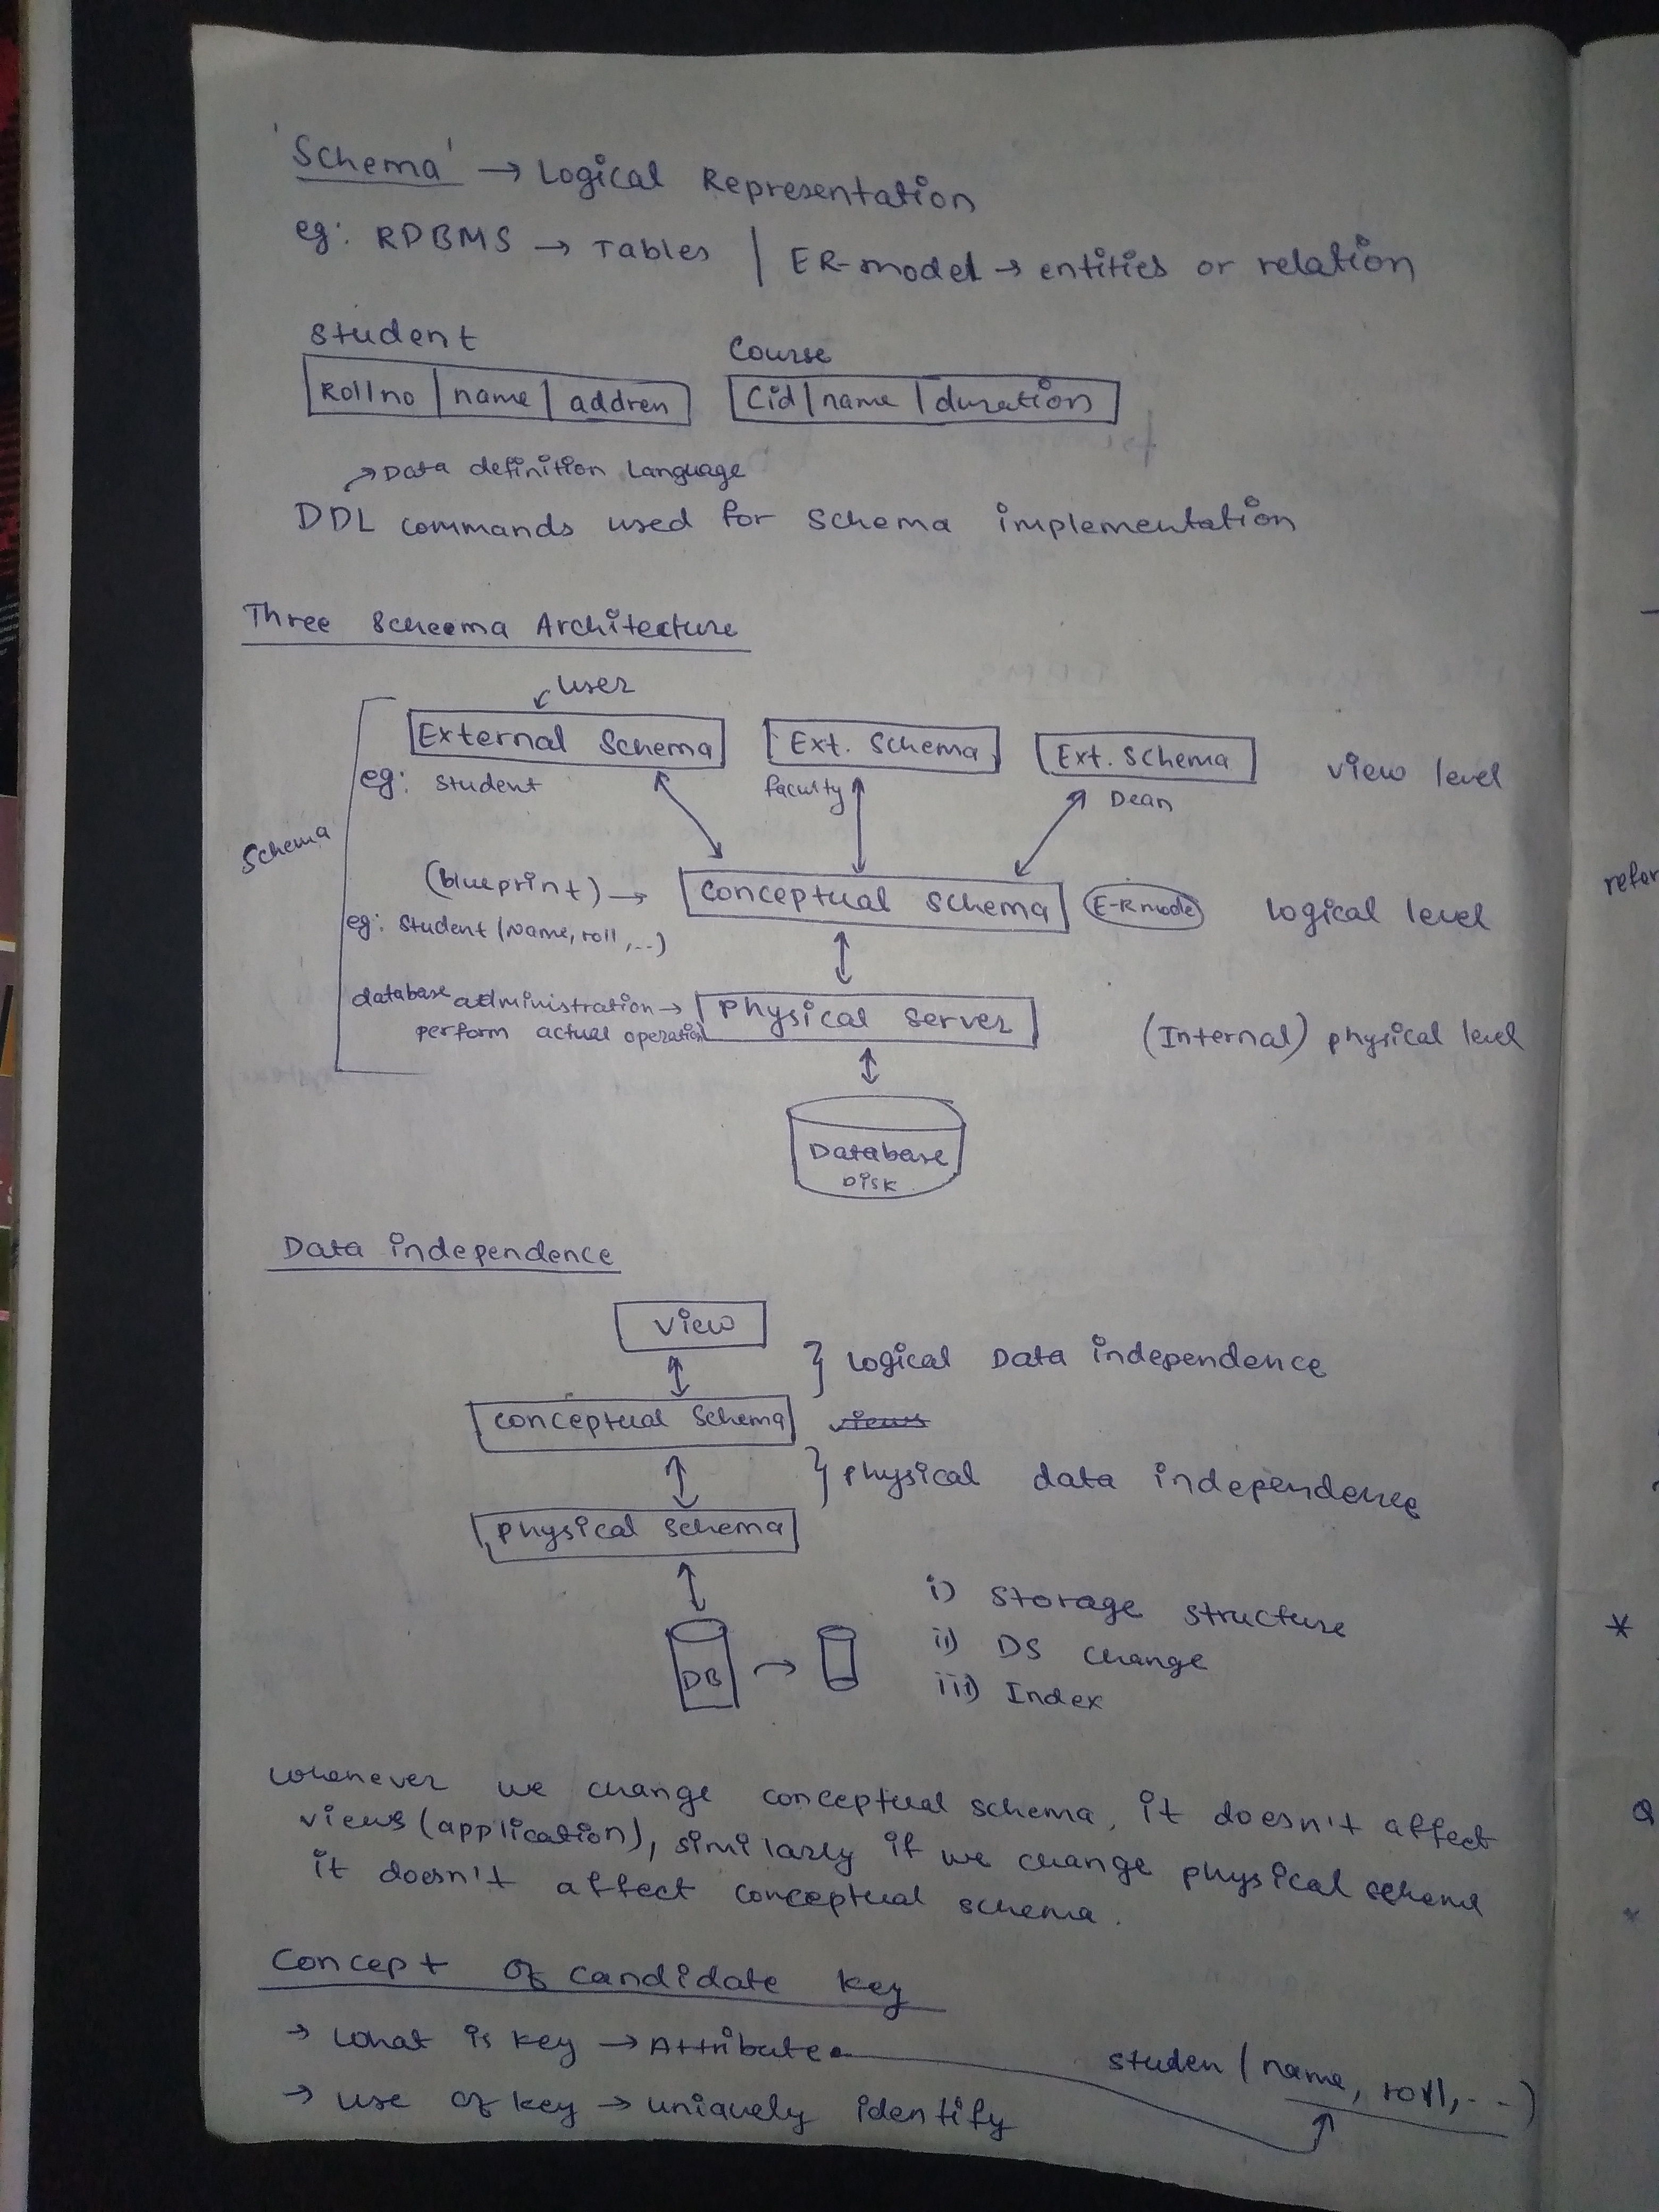 'Schema' → Logical Representation
eg: RDBMS → Tables | ER-model → entities or relation
Student
Course
Rollno | name | addren
Cid | name | duration
→ Data definition Language
DDL commands used for schema implementation
Three Scheema Architecture
user
External Schema
Ext. Schema
Ext. Schema
view level
eg: student
faculty
Dean
Schema
(blueprint) →
conceptual schema
E-R mode
logical level
eg: Student (Name, roll, ...)
database administration →
perform actual operation
physical server
(Internal) physical level
Database
Disk
Data independence
view
} logical Data independence
conceptual schema
} physical data independence
physical schema
DB →
i) storage structure
ii) DS change
iii) Index
whenever we change conceptual schema, it doesn't affect
views (application), similarly if we change physical schema
it doesn't affect conceptual schema.
Concept of candidate key
→ what is key → Attribute
studen (name, roll, ...)
→ use of key → uniquely identify
refer
*
Q
*